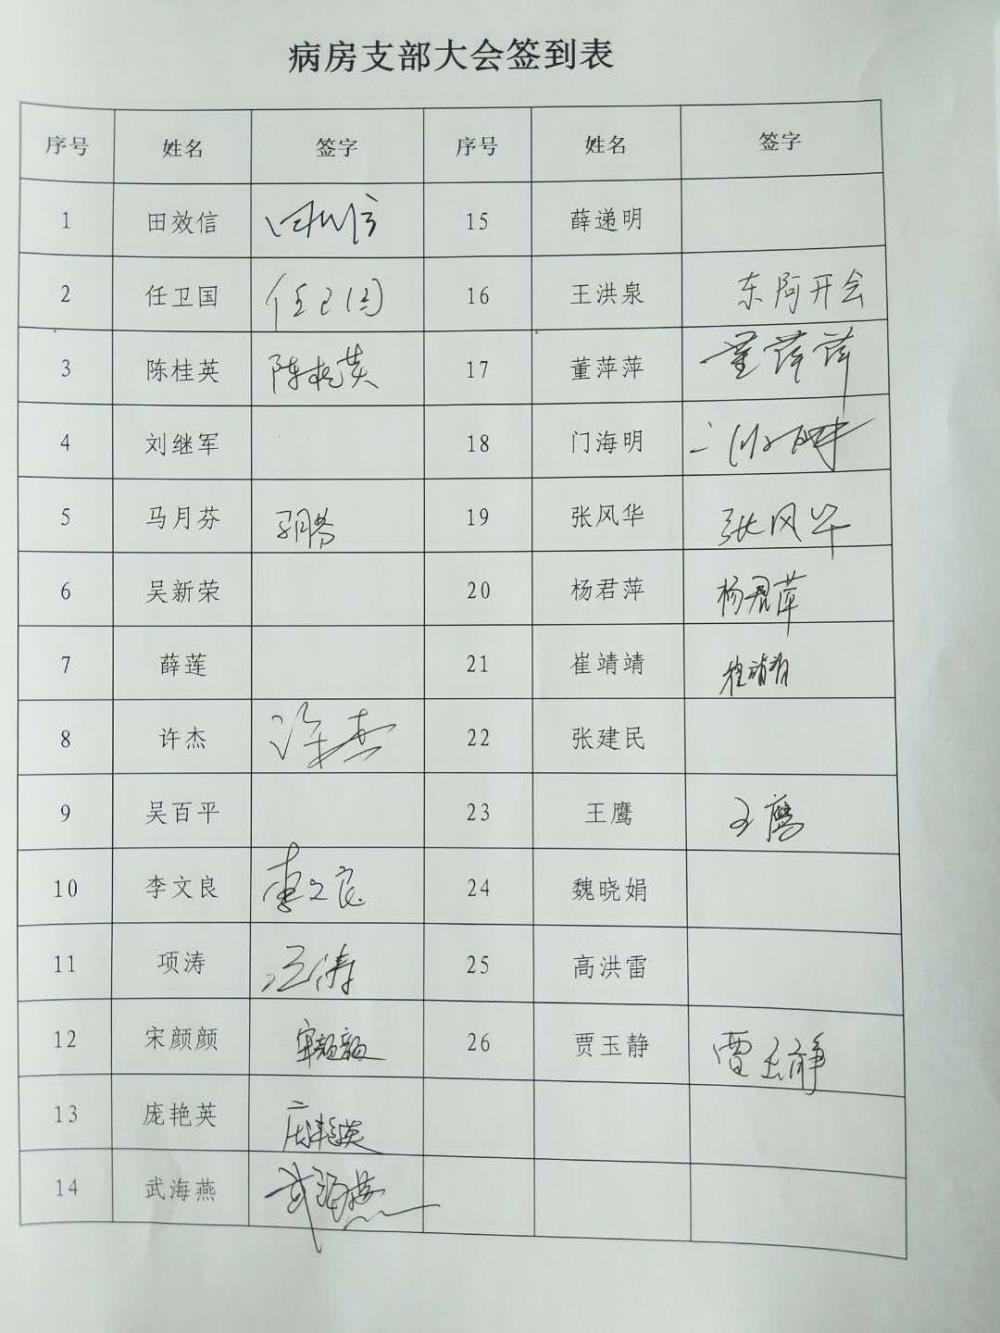 病房支部大会签到表
序号 姓名 签字 序号 姓名 签字
1 田效信 田效信 15 薛递明
2 任卫国 任卫国 16 王洪泉 东阿开会
3 陈桂英 陈桂英 17 董萍萍 董萍萍
4 刘继军 18 门海明 门海明
5 马月芬 马月芬 19 张风华 张风华
6 吴新荣 20 杨君萍 杨君萍
7 薛莲 21 崔靖靖 崔靖靖
8 许杰 许杰 22 张建民
9 吴百平 23 王鹰 王鹰
10 李文良 李文良 24 魏晓娟
11 项涛 项涛 25 高洪雷
12 宋颜颜 宋颜颜 26 贾玉静 贾玉静
13 庞艳英 庞艳英
14 武海燕 武海燕